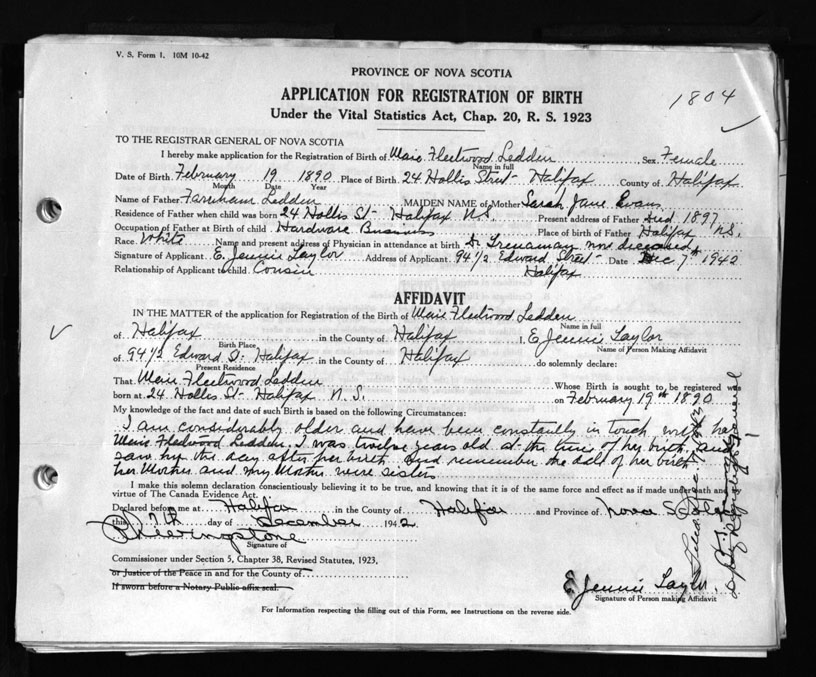 V. S. Form 1. 10M 10-42
PROVINCE OF NOVA SCOTIA
1804
APPLICATION FOR REGISTRATION OF BIRTH
Under the Vital Statistics Act, Chap. 20, R. S. 1923
TO THE REGISTRAR GENERAL OF NOVA SCOTIA
I hereby make application for the Registration of Birth of Marie Fleetwood Ledden Sex Female
Name in full
Date of Birth February 19 1890 Place of Birth 24 Hollis Street Halifax County of Halifax
Month Date Year
Name of Father Farnham Ledden MAIDEN NAME of Mother Sarah Jane Evans
Residence of Father when child was born 24 Hollis St Halifax N.S. Present address of Father Died 1897
Occupation of Father at Birth of child Hardware Business Place of birth of Father Halifax N.S.
Race White Name and present address of Physician in attendance at birth Dr now deceased
Signature of Applicant E. Jennie Taylor Address of Applicant 94 1/2 Edward Street Date Dec 7th 1942
Relationship of Applicant to child Cousin Halifax
AFFIDAVIT
IN THE MATTER of the application for Registration of the Birth of Marie Fleetwood Ledden
Name in full
of Halifax in the County of Halifax I, E Jennie Taylor
Birth Place Name of Person Making Affidavit
of 94 1/2 Edward St. Halifax in the County of Halifax do solemnly declare:
Present Residence
That Marie Fleetwood Ledden Whose Birth is sought to be registered was
born at 24 Hollis St Halifax N.S. on February 19th 1890
My knowledge of the fact and date of such Birth is based on the following Circumstances:
I am considerably older and have been constantly in touch with her
Marie Fleetwood Ledden. I was twelve years old at the time of her birth, and
saw her the day after her birth and remember the date of her birth
her Mother and my Mother were sisters
I make this solemn declaration conscientiously believing it to be true, and knowing that it is of the same force and effect as if made under oath and
virtue of The Canada Evidence Act.
Declared before me at Halifax in the County of Halifax and Province of Nova Scotia
this 7th day of December 1942
Livingstone
Signature of
Commissioner under Section 5, Chapter 38, Revised Statutes, 1923,
or Justice of the Peace in and for the County of
If sworn before a Notary Public affix seal.
E Jennie Taylor
Signature of Person making Affidavit
For Information respecting the filling out of this Form, see Instructions on the reverse side.
Deputy Registrar General